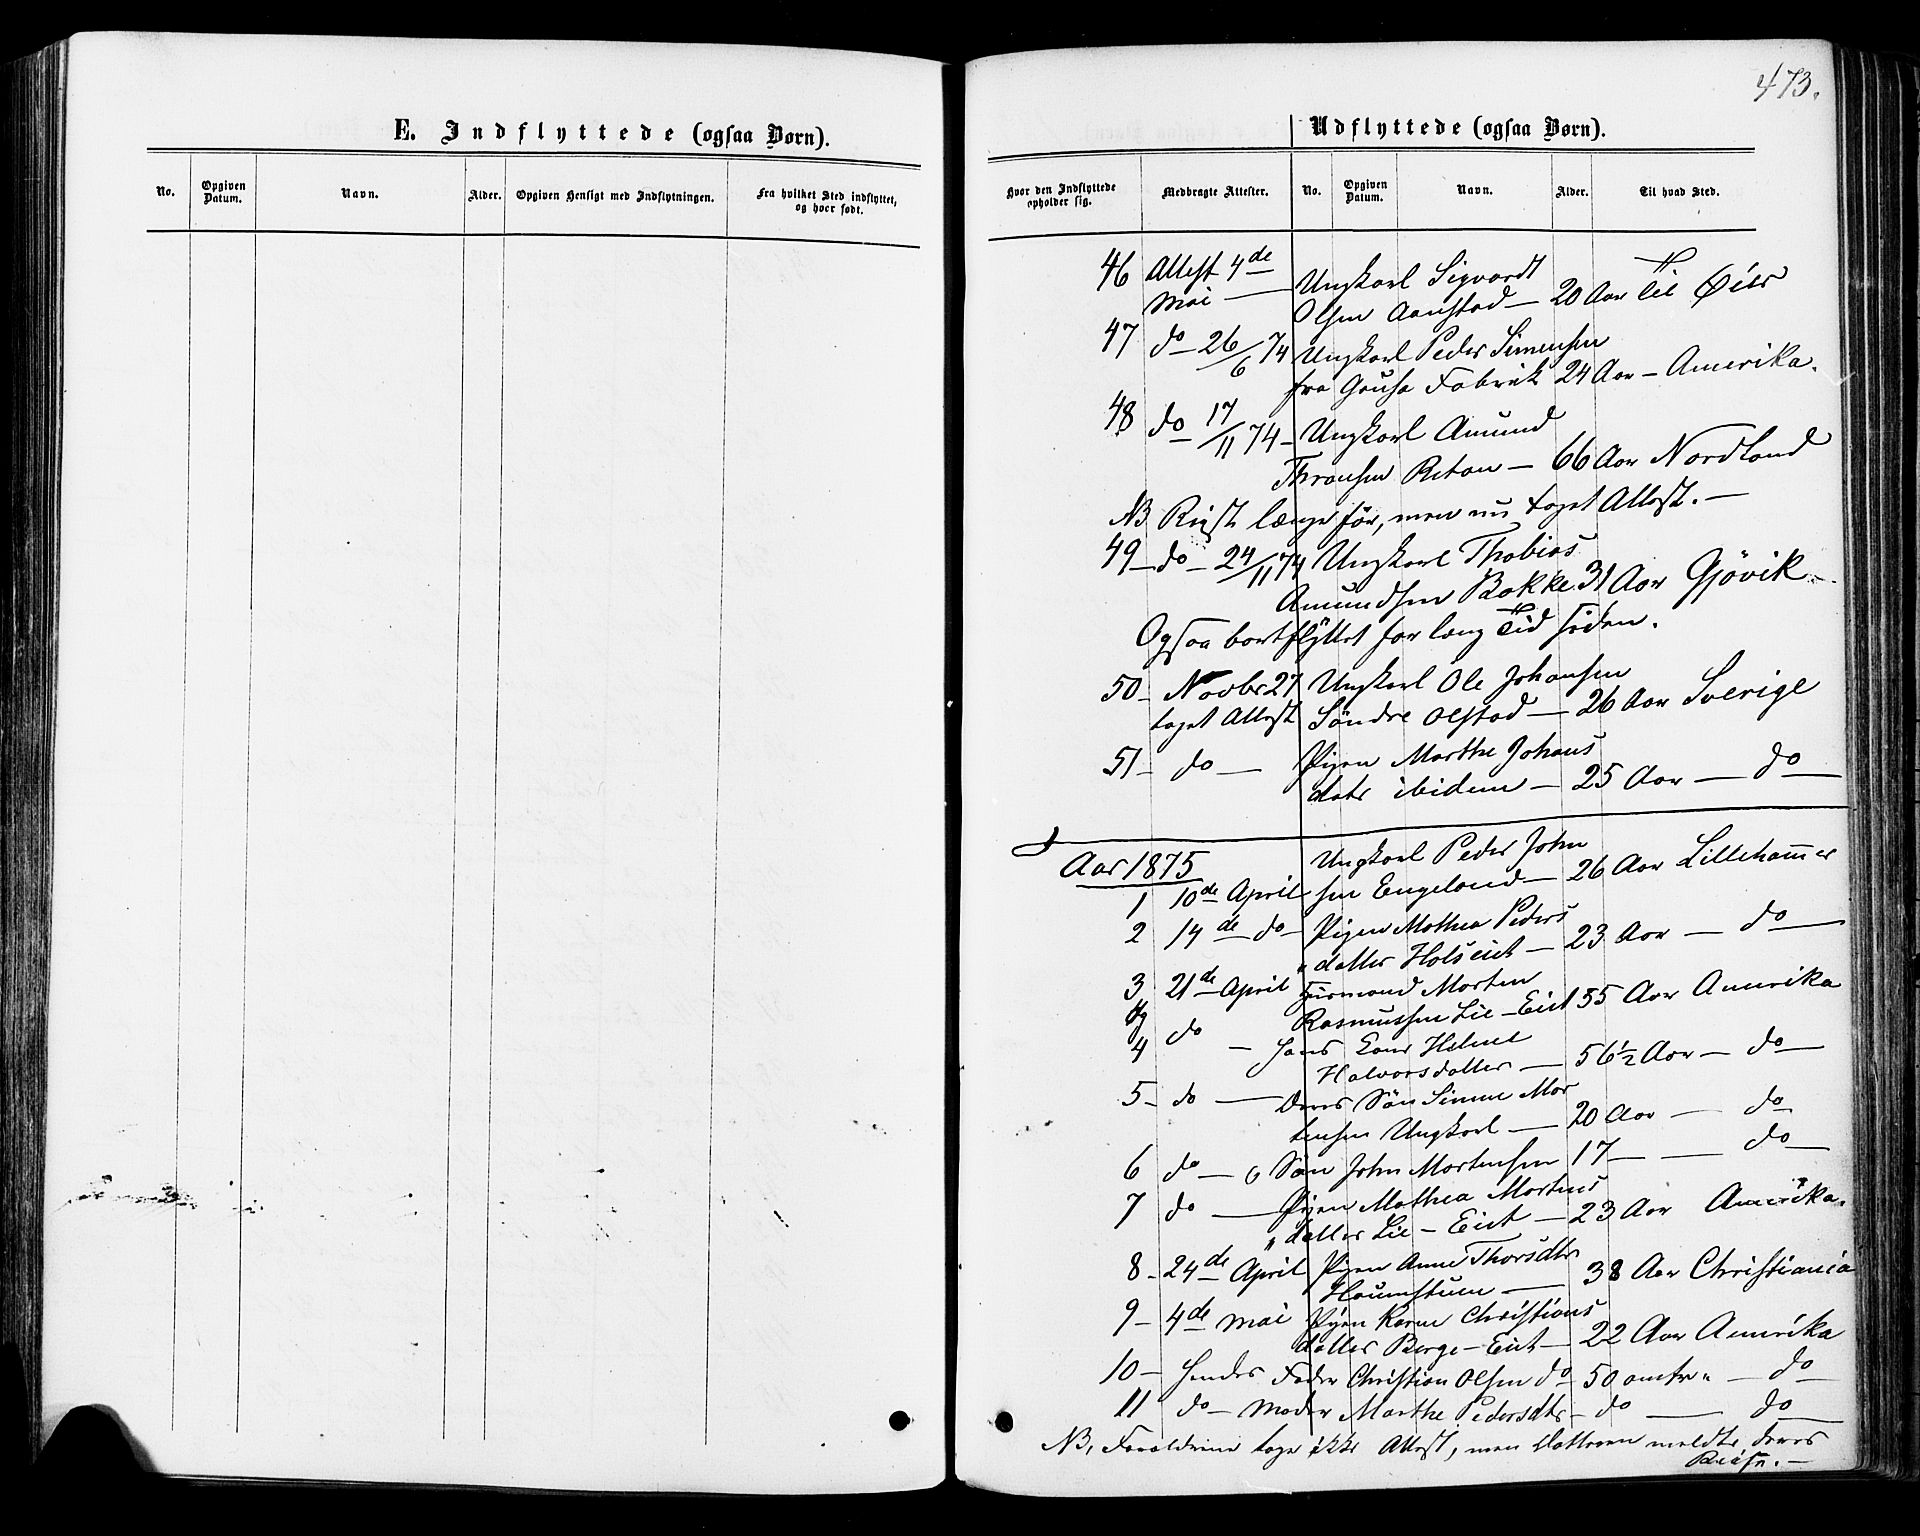 E. Indflyttede (ogsaa Børn).
No.
Opgiven Datum.
Navn.
Alder.
Opgiven Hensigt med Indflytningen.
Fra hvilket Sted indflyttet, og hvor født.
473.
Udflyttede (ogsaa Børn).
Hvor den Indflyttede opholder sig.
Medbragte Attester.
No.
Opgiven Datum.
Navn.
Alder.
Til hvad Sted.
46 Attest 4de Ungkarl Sigvardt
Mai — Olsen Aanstad — 20 Aar Til Øier
47 do — 26/6 74 Ungkarl Peder Simensen
fra Gausa Fabrik 24 Aar — Amerika.
48 do 17/11 74 — Ungkarl Amund
Thronsen — 66 Aar Nordland
NB Reist længe før, men nu taget Attest. —
49 — do — 24/11 74 Ungkarl Thobias
Amundsen Bakke 31 Aar Gjövik —
Ogsaa bortflyttet for lang Tid siden.
50 — Novbr 27 Ungkarl Ole Johansen
taget Attest Söndre Olstad — 26 Aar Sverige
51 — do — Pigen Marthe Johans
datr ibidem — 25 Aar — do —
Aar 1875 Ungkarl Peder John
1 10de April sen Engeland — 26 Aar Lillehammer
2 14de do — Pigen Mathea Peders
datter Holseiet — 23 Aar — do —
3 21de April Huusmand Morten
Rasmussen Lie — Eiet 55 Aar Amerika
og
4 do — Hans Kone Helene
Halvorsdatter — 56 1/2 Aar — do —
5 — do — Deres Sön Simen Mor
tensen Ungkarl — 20 Aar — do
6 do — o Sön John Mortensen 17 — — do —
7 do — Pigen Mathea Mortens
datter Lie — Eiet — 23 Aar Amerika.
8 — 24de April Pigen Anne Thorsdtr
— 38 Aar Christiania
9 — 4de Mai Pigen Karen Christians
datter Berge — Eiet — 22 Aar Amerika
10 — Hendes Fader Christian Olsen do 50 omtr " — do —
11 do — Moder Marthe Pedersdtr — do — do
NB, Forældrene toge ikke Attest, men Datteren meldte deres
Reise. —